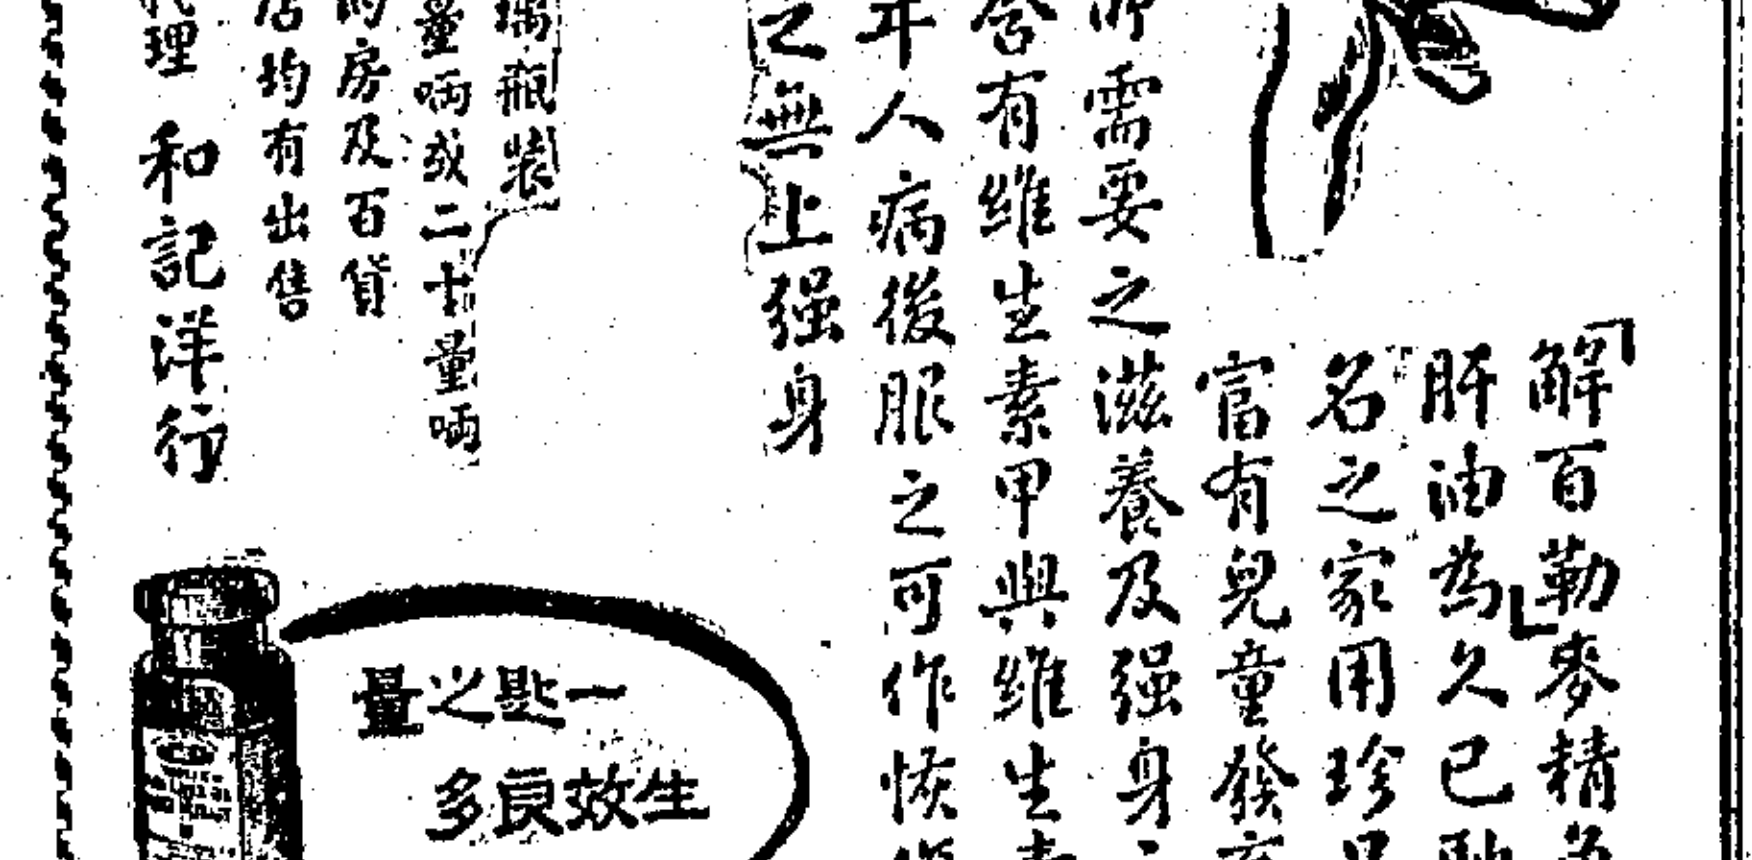 「解百勒」麥精魚
肝油為久已馳
名之家用珍品
富有兒童發育
所需要之滋養及强身之
含有維生素甲與維生素
年人病後服之可作恢復
之無上强身
瓶裝
量啢或二十量啢
房及百貨
店均有出售
代理 和記洋行
一匙之量
生效良多